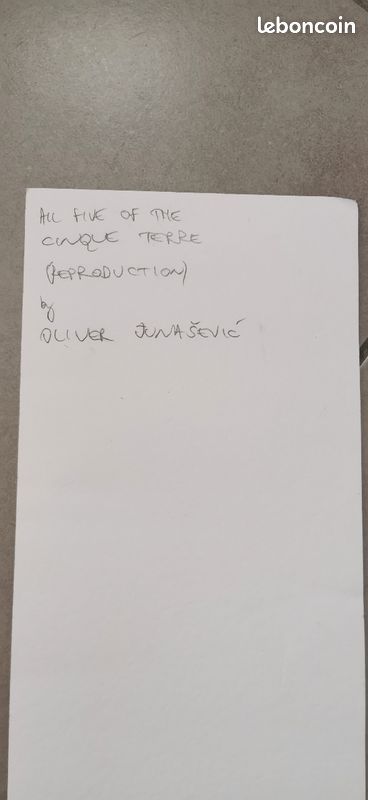 leboncoin
ALL FIVE OF THE
CINQUE TERRE
(REPRODUCTION)
by
OLIVER JUNAŠEVIĆ